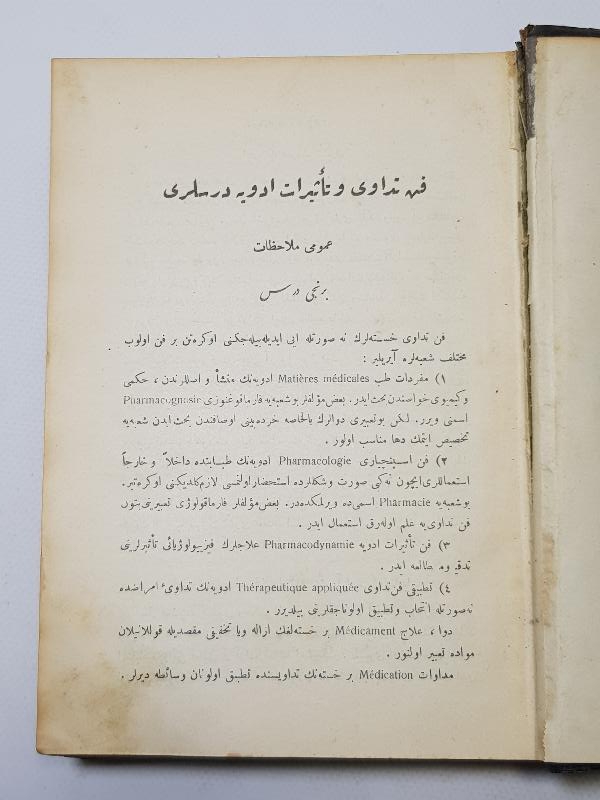 فن تداوی و تأثیرات ادویه درسلری
عمومی ملاحظات
برنجی درس
فن تداوی خسته‌لرك نه صورتله ایی ایدیله‌بیله‌جكنی اوكره‌تن بر فن اولوب
مختلف شعبه‌لره آیریلیر :
۱) مفردات طب Matières médicales ادویه‌نك منشأ و اصللرندن ، حكمی
وكیمیوی خواصندن بحث ایدر. بعض مؤلفلر بو شعبه‌یه فارماقوغنوزی Pharmacognosie
اسمنی ویرر. لكن بوتعبیری دوالرك بالخاصه خرده‌بینی اوصافندن بحث ایدن شعبه‌یه
تخصیص ایتمك دها مناسب اولور .
۲) فن اسپنچیاری Pharmacologie ادویه‌نك طبابتده داخلاً و خارجاً
استعماللری ایچون نه‌كی صورت و شكللرده استحضار اولنمسی لازم كلدیكنی اوكره‌تیر.
بوشعبه‌یه Pharmacie اسمی‌ده ویرلمكده‌در. بعض مؤلفلر فارماقولوژی تعبیرینی بتون
فن تداوی‌یه علم اوله‌رق استعمال ایدر .
۳) فن تأثیرات ادویه Pharmacodynamie علاجلرك فیزیولوژیائی تأثیرلرینی
تدقیق و مطالعه ایدر .
٤) تطبیقی فن تداوی Thérapeutique appliquée ادویه‌نك تداوئ امراضده
نه‌صورتله انتخاب وتطبیق اولوناجقلرینی بیلدیرر .
دوا ، علاج Médicament بر خسته‌لغك ازاله ویا تخفیفی مقصدیله قوللانیلان
مواده تعبیر اولنور .
مداوات Médication بر خسته‌نك تداویسنده تطبیق اولونان وسائطه دیرلر .